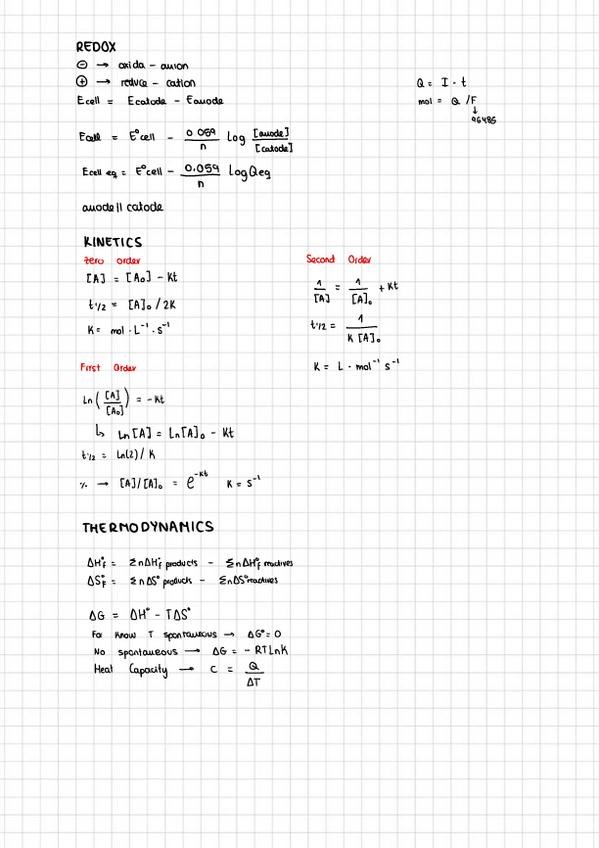 REDOX
⊖ → oxida - anion
⊕ → reduce - cation
Ecell = Ecatode - Eanode
Q = I · t
mol = Q / F
↓
96485
Ecell = E°cell - 0.059/n log [anode]/[catode]
Ecell eq = E°cell - 0.059/n log Qeq
anode || catode
KINETICS
Zero order
[A] = [A₀] - Kt
t½ = [A]₀ / 2K
K = mol · L⁻¹ · s⁻¹
Second Order
1/[A] = 1/[A]₀ + Kt
t½ = 1/K [A]₀
K = L · mol⁻¹ s⁻¹
First Order
Ln ([A]/[A₀]) = -Kt
↳ Ln [A] = Ln [A]₀ - Kt
t½ = Ln(2) / K
% → [A]/[A]₀ = e^-Kt K = s⁻¹
THERMODYNAMICS
ΔH°f = ΣnΔH°f products - ΣnΔH°f reactives
ΔS°f = ΣnΔS° products - ΣnΔS° reactives
ΔG = ΔH° - TΔS°
For Know T spontaneous → ΔG° = 0
No spontaneous → ΔG = - RTLnK
Heat Capacity → C = Q/ΔT